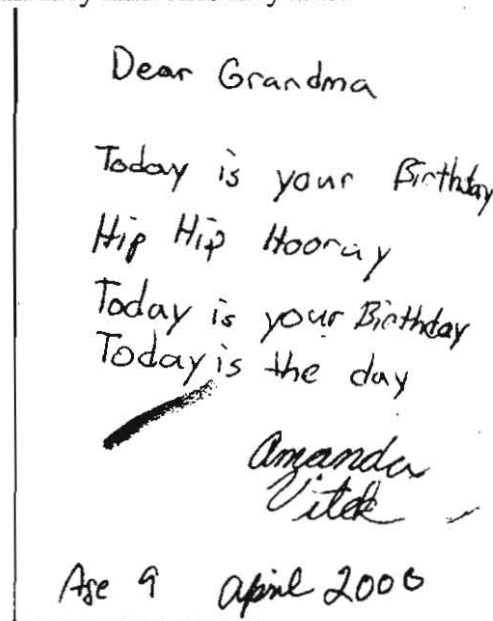 Dear Grandma
Today is your Birthday
Hip Hip Hooray
Today is your Birthday
Today is the day
Amanda
Vitek
Age 9 april 2000